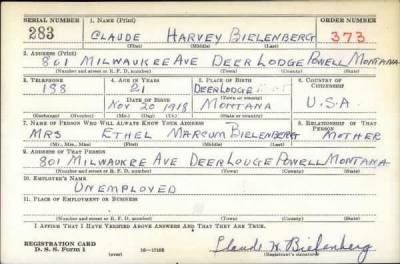 SERIAL NUMBER 1. NAME (Print) ORDER NUMBER
283 CLAUDE HARVEY BIELENBERG 373
(First) (Middle) (Last)
2. ADDRESS (Print)
801 MILWAUKEE AVE DEER LODGE POWELL MONTANA
(Number and street or R. F. D. number) (Town) (County) (State)
3. TELEPHONE 4. AGE IN YEARS 5. PLACE OF BIRTH 6. COUNTRY OF CITIZENSHIP
188 21 DEERLODGE
DATE OF BIRTH (Town or county)
NOV 20 1918 MONTANA U.S.A.
(Mo.) (Day) (Yr.) (State or country)
7. NAME OF PERSON WHO WILL ALWAYS KNOW YOUR ADDRESS 8. RELATIONSHIP OF THAT PERSON
MRS ETHEL MARCUM BIELENBERG MOTHER
(Mr., Mrs., Miss) (First) (Middle) (Last)
9. ADDRESS OF THAT PERSON
801 MILWAUKEE AVE DEER LODGE POWELL MONTANA
(Number and street or R. F. D. number) (Town) (County) (State)
10. EMPLOYER'S NAME
UNEMPLOYED
11. PLACE OF EMPLOYMENT OR BUSINESS
(Number and street or R. F. D. number) (Town) (County) (State)
I AFFIRM THAT I HAVE VERIFIED ABOVE ANSWERS AND THAT THEY ARE TRUE.
REGISTRATION CARD
D. S. S. Form 1 (over) 16-17105 Claude H. Bielenberg
(Registrant's signature)